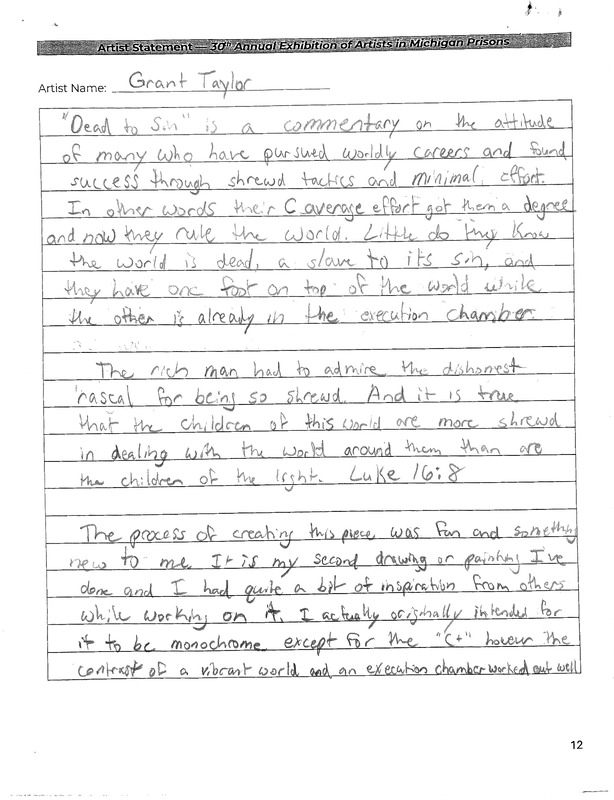 Artist Statement — 30th Annual Exhibition of Artists in Michigan Prisons
Artist Name: Grant Taylor
"Dead to Sin" is a commentary on the attitude
of many who have pursued worldly careers and found
success through shrewd tactics and minimal effort.
In other words their C average effort got them a degree
and now they rule the world. Little do they know
the world is dead, a slave to its sin, and
they have one foot on top of the world while
the other is already in the execution chamber.
The rich man had to admire the dishonest
rascal for being so shrewd. And it is true
that the children of this world are more shrewd
in dealing with the world around them than are
the children of the light. Luke 16:8
The process of creating this piece was fun and something
new to me. It is my second drawing or painting I've
done and I had quite a bit of inspiration from others
while working on it. I actually originally intended for
it to be monochrome except for the "C+" the
contrast of a vibrant world and an execution chamber worked out well
12